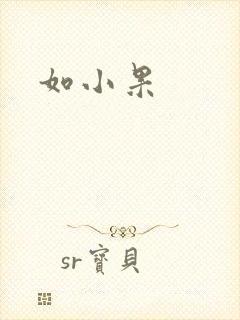 如小果
sr寶貝